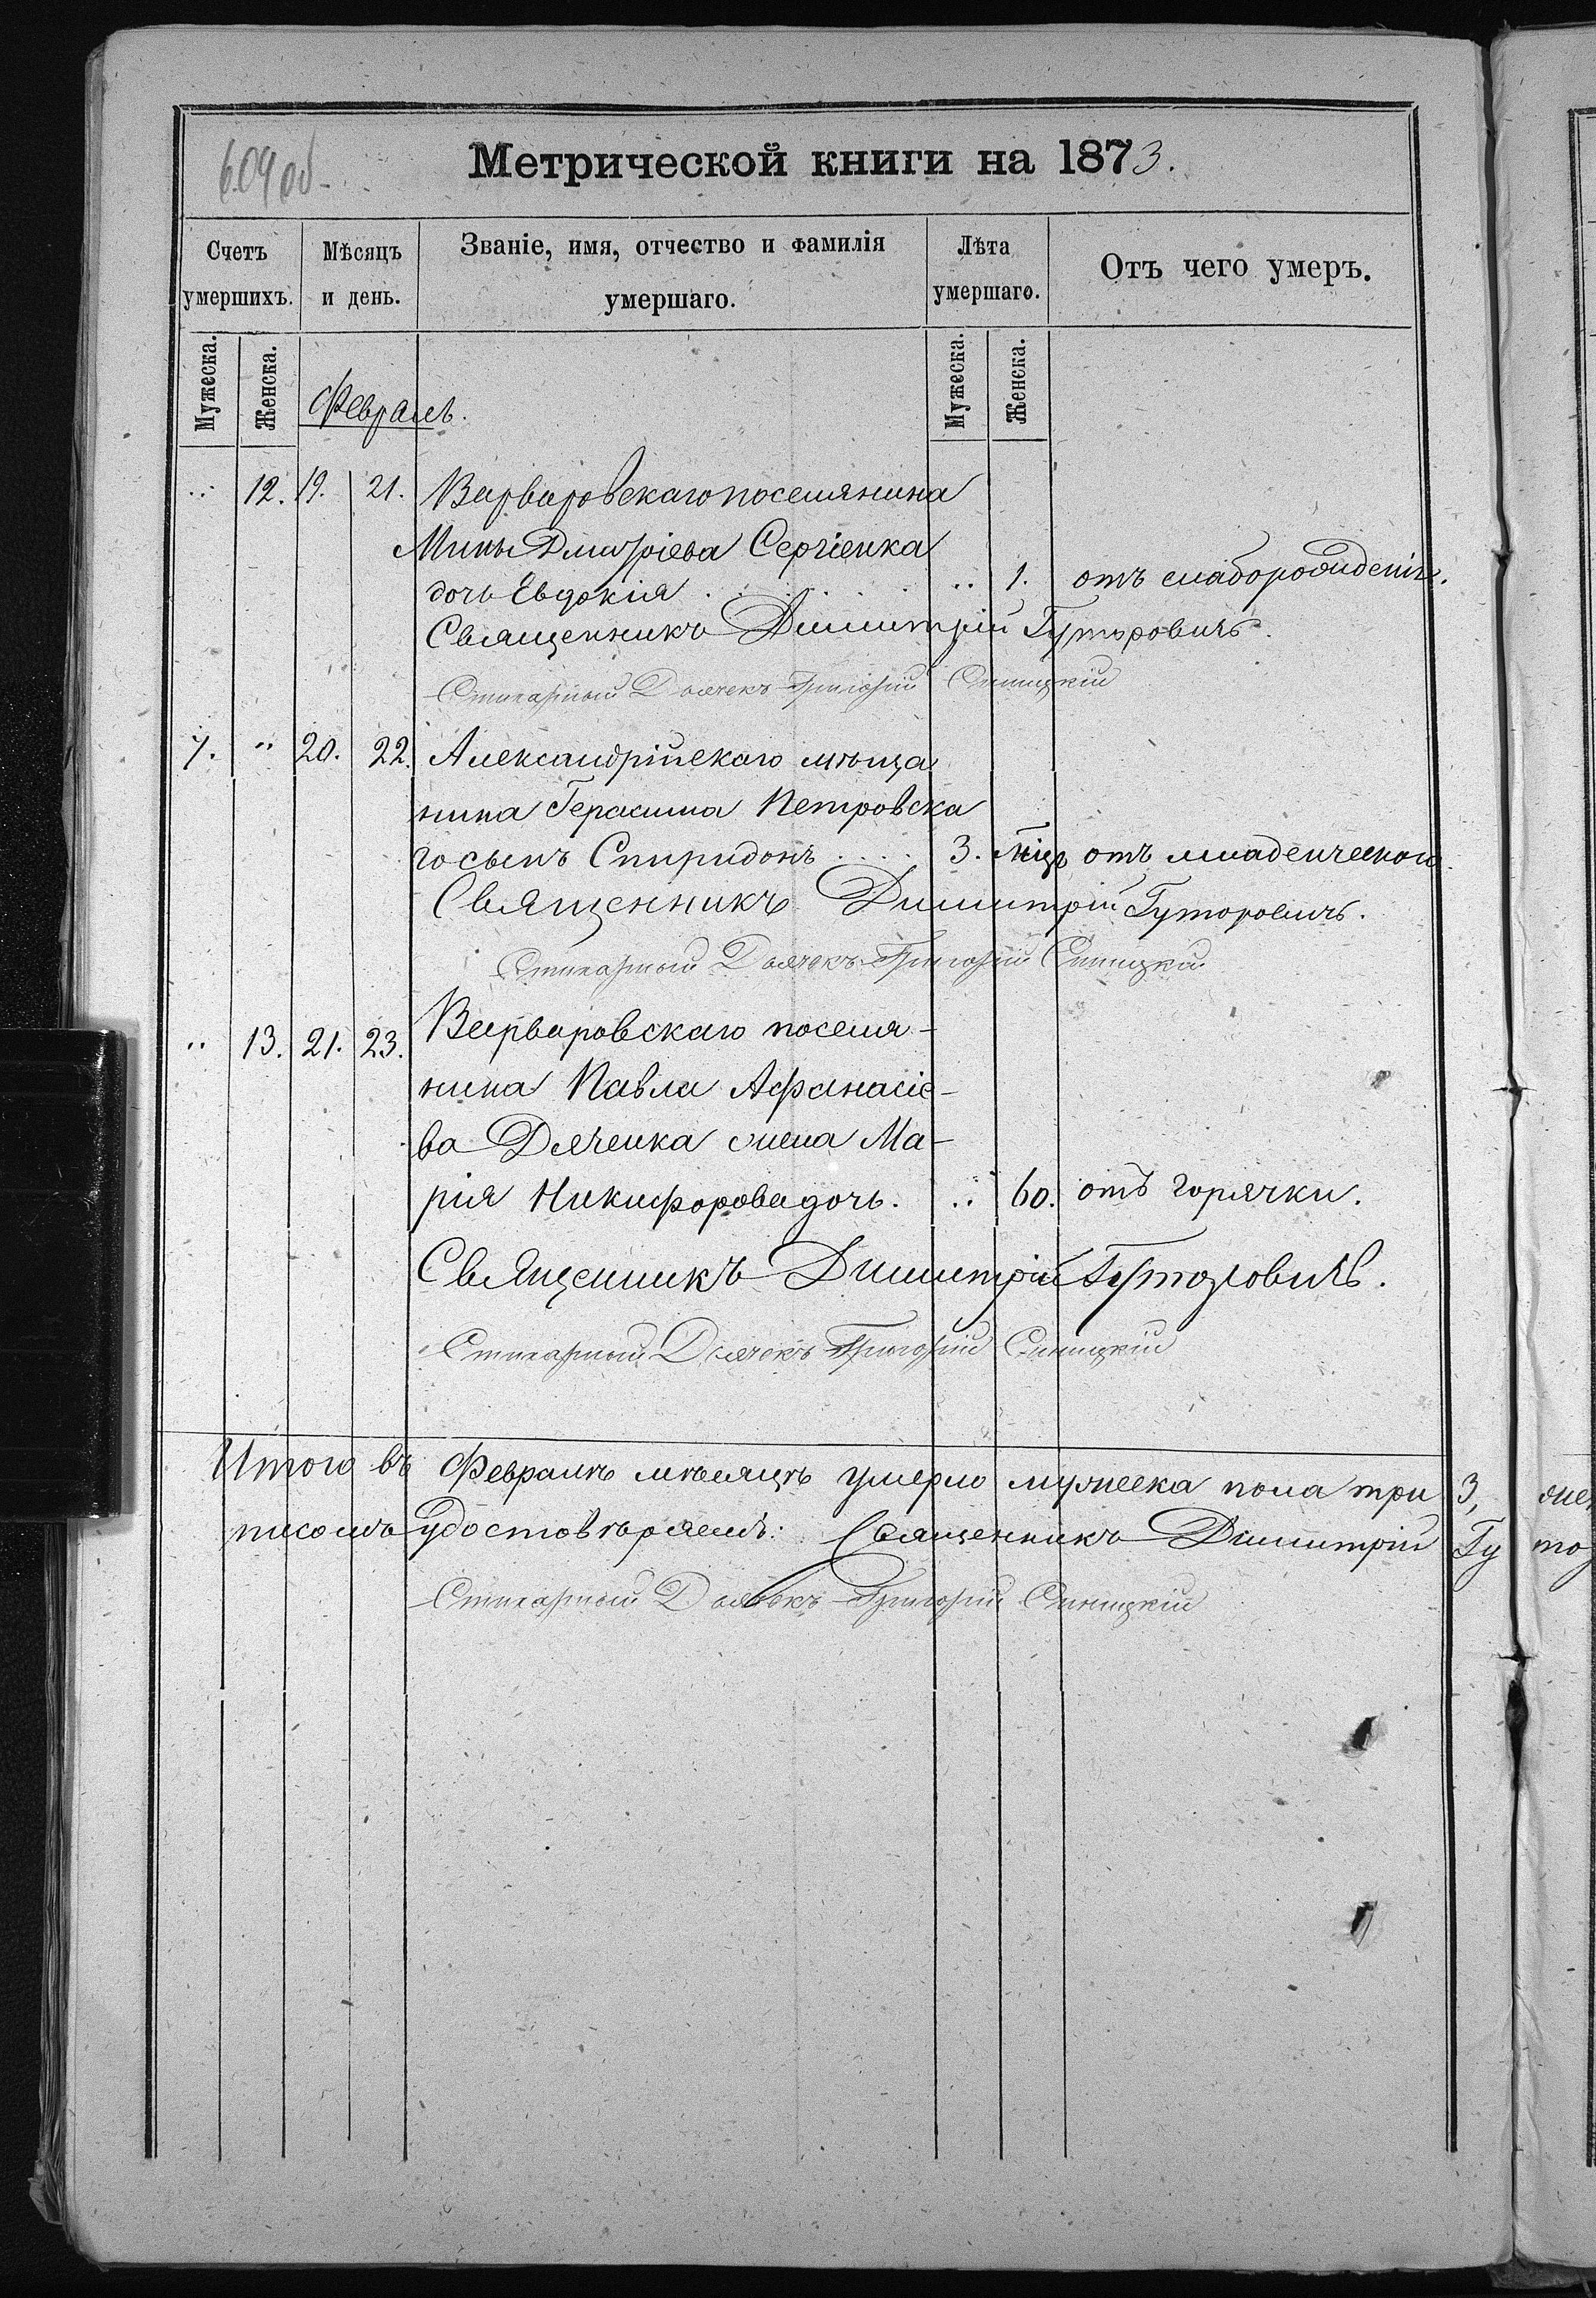 609 об
Метрической книги на 1873.
Счетъ умершихъ.
Мѣсяцъ и день.
Званіе, имя, отчество и фамилія умершаго.
Лѣта умершаго.
Отъ чего умеръ.
Мужеска. Женска. Мужеска. Женска.
Февраль.
12. 19. 21. Варваровскаго поселянина
Мины Дмитріева Сергіенка
дочь Евдокія . . . . . " 1. отъ слаборожденія.
Священникъ Димитрій Гуторовичъ.
Стихарный Дьячекъ Григорій Синицкій
7. " 20. 22. Александрійскаго мѣща
нина Герасима Петровска
го сынъ Спиридонъ . . . . 3. мц. отъ младенческой.
Священникъ Димитрій Гуторовичъ.
Стихарный Дьячекъ Григорій Синицкій
" 13. 21. 23. Варваровскаго поселя-
нина Павла Афанасіе-
ва Дяченка жена Ма-
рія Никифорова дочь. " 60. отъ горячки.
Священникъ Димитрій Гуторовичъ.
Стихарный Дьячекъ Григорій Синицкій
Итого въ Февралѣ мѣсяцѣ умерло мужеска пола три 3, же
писомъ удостовѣряемъ: Священникъ Димитрій Гу то
Стихарный Дьячекъ Григорій Синицкій